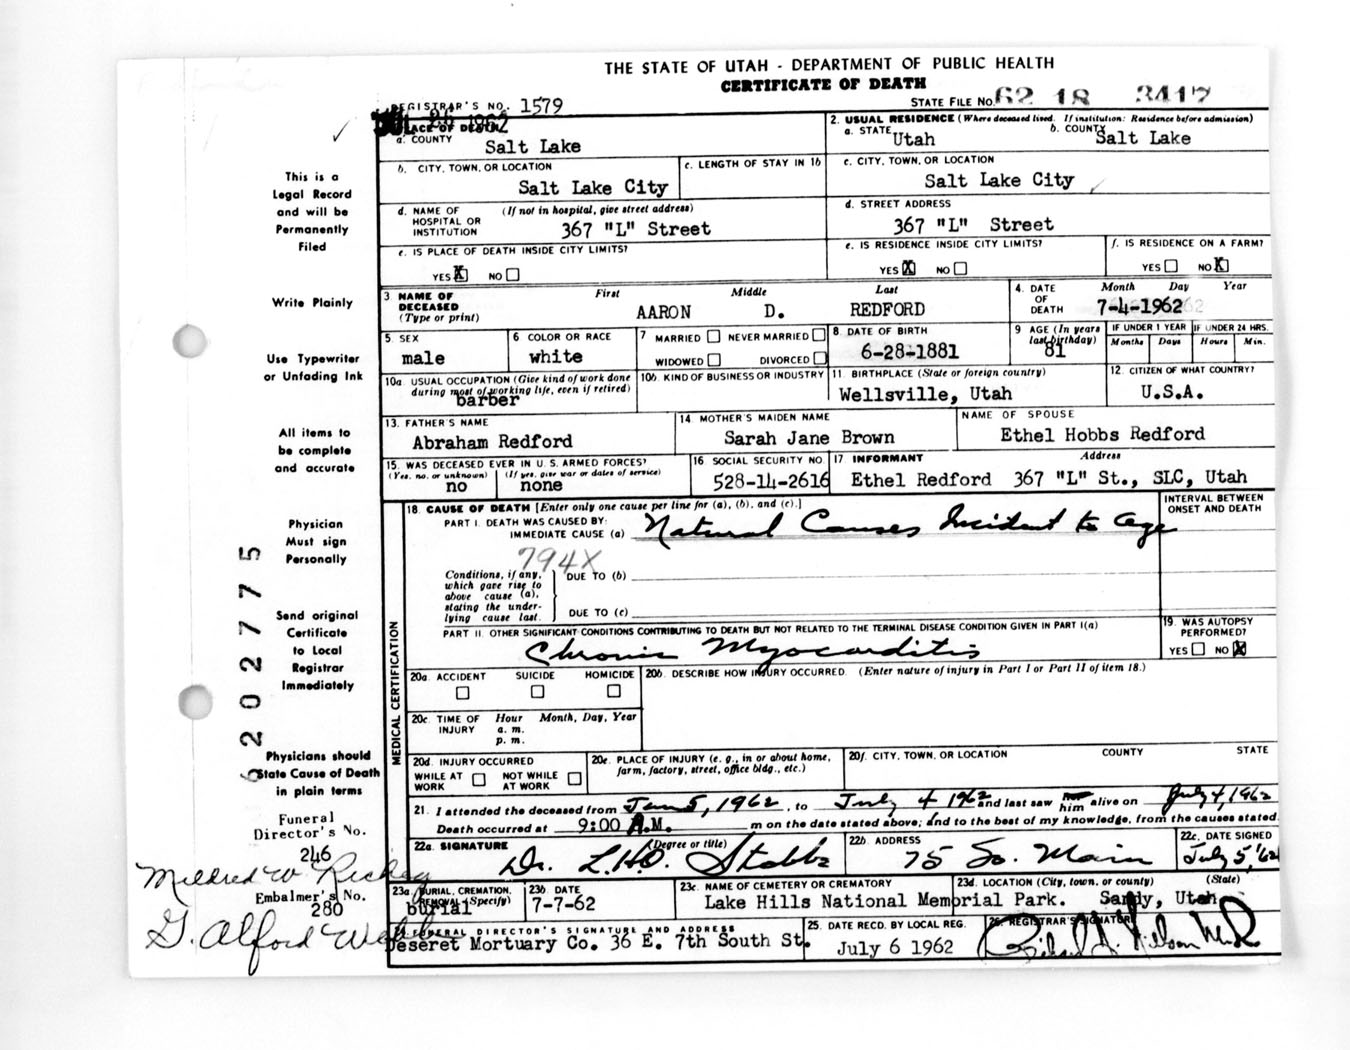 THE STATE OF UTAH - DEPARTMENT OF PUBLIC HEALTH
CERTIFICATE OF DEATH
REGISTRAR'S NO. 1579
STATE FILE NO. 62 18 3417
JUL 26 1962
PLACE OF DEATH
a. COUNTY Salt Lake
2. USUAL RESIDENCE (Where deceased lived. If institution: Residence before admission)
a. STATE Utah b. COUNTY Salt Lake
b. CITY, TOWN, OR LOCATION Salt Lake City
c. LENGTH OF STAY IN 1b
c. CITY, TOWN, OR LOCATION Salt Lake City
d. NAME OF HOSPITAL OR INSTITUTION (If not in hospital, give street address) 367 "L" Street
d. STREET ADDRESS 367 "L" Street
e. IS PLACE OF DEATH INSIDE CITY LIMITS? YES X NO
e. IS RESIDENCE INSIDE CITY LIMITS? YES X NO
f. IS RESIDENCE ON A FARM? YES NO X
3. NAME OF DECEASED (Type or print) First AARON Middle D. Last REDFORD
4. DATE OF DEATH Month Day Year 7-4-1962
5. SEX male
6 COLOR OR RACE white
7 MARRIED NEVER MARRIED WIDOWED DIVORCED
8. DATE OF BIRTH 6-28-1881
9 AGE (In years last birthday) 81
IF UNDER 1 YEAR Months Days
IF UNDER 24 HRS. Hours Min.
10a. USUAL OCCUPATION (Give kind of work done during most of working life, even if retired) barber
10b. KIND OF BUSINESS OR INDUSTRY
11. BIRTHPLACE (State or foreign country) Wellsville, Utah
12. CITIZEN OF WHAT COUNTRY? U.S.A.
13. FATHER'S NAME Abraham Redford
14 MOTHER'S MAIDEN NAME Sarah Jane Brown
NAME OF SPOUSE Ethel Hobbs Redford
15. WAS DECEASED EVER IN U.S. ARMED FORCES?
(Yes, no, or unknown) no (If yes, give war or dates of service) none
16 SOCIAL SECURITY NO. 528-14-2616
17 INFORMANT Address Ethel Redford 367 "L" St., SLC, Utah
18. CAUSE OF DEATH [Enter only one cause per line for (a), (b), and (c).]
INTERVAL BETWEEN ONSET AND DEATH
PART I. DEATH WAS CAUSED BY:
IMMEDIATE CAUSE (a) Natural Causes Incident to Age
794X
Conditions, if any, which gave rise to above cause (a), stating the underlying cause last.
DUE TO (b)
DUE TO (c)
PART II. OTHER SIGNIFICANT CONDITIONS CONTRIBUTING TO DEATH BUT NOT RELATED TO THE TERMINAL DISEASE CONDITION GIVEN IN PART I(a)
Chronic Myocarditis
19. WAS AUTOPSY PERFORMED? YES NO X
MEDICAL CERTIFICATION
20a. ACCIDENT SUICIDE HOMICIDE
20b. DESCRIBE HOW INJURY OCCURRED. (Enter nature of injury in Part I or Part II of item 18.)
20c. TIME OF INJURY Hour a. m. p. m. Month, Day, Year
20d. INJURY OCCURRED WHILE AT WORK NOT WHILE AT WORK
20e. PLACE OF INJURY (e. g., in or about home, farm, factory, street, office bldg., etc.)
20f. CITY, TOWN, OR LOCATION COUNTY STATE
21. I attended the deceased from Jan 5, 1962, to July 4 1962 and last saw him alive on July 4, 1962
Death occurred at 9:00 A.M. m on the date stated above; and to the best of my knowledge, from the causes stated.
22a. SIGNATURE (Degree or title) Dr. L.H.O. Stobbe
22b. ADDRESS 75 So. Main
22c. DATE SIGNED July 5, '62
23a. BURIAL, CREMATION, REMOVAL (Specify) burial
23b. DATE 7-7-62
23c. NAME OF CEMETERY OR CREMATORY Lake Hills National Memorial Park.
23d. LOCATION (City, town, or county) (State) Sandy, Utah
FUNERAL DIRECTOR'S SIGNATURE AND ADDRESS
Deseret Mortuary Co. 36 E. 7th South St.
25. DATE RECD. BY LOCAL REG. July 6 1962
26. REGISTRAR'S SIGNATURE
This is a
Legal Record
and will be
Permanently
Filed
Write Plainly
Use Typewriter
or Unfading Ink
All items to
be complete
and accurate
Physician
Must sign
Personally
Send original
Certificate
to Local
Registrar
Immediately
Physicians should
State Cause of Death
in plain terms
Funeral
Director's No.
246
Mildred W
Embalmer's No.
280
G. Alford
6202775